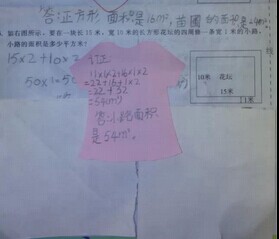 答:正方形 面积是16m², 苗圃的面积是24m²
如右图所示,要在一块长15米,宽10米的长方形花坛的四周修一条宽1米的小路,
小路的面积是多少平方米?
15×2+10×2
50×1=50
订正
11×1×2+16×1×2
=22+16×1×2
=22+32
=54m²
答:小路面积
是54m².
10米
花坛
15米
1米